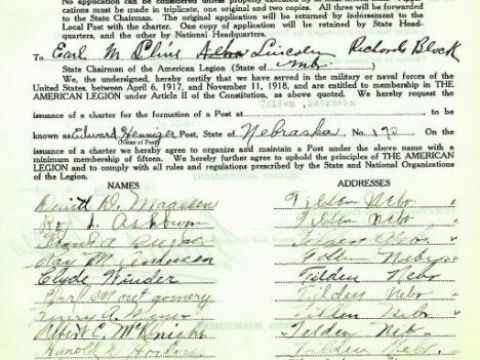 No application can be considered unless properly executed
cations must be made in triplicate, one original and two copies. All three will be forwarded
to the State Chairman. The original application will be returned by indorsement to the
Local Post with the charter. One copy of application will be retained by State Head-
quarters, and the other by National Headquarters.
To Earl M Cline Lincoln Richards Block
State Chairman of the American Legion (State of Neb.
We, the undersigned, hereby certify that we have served in the military or naval forces of the
United States between April 6, 1917, and November 11, 1918, and are entitled to membership in THE
AMERICAN LEGION under Article II of the Constitution, as above quoted. We hereby request the
Tilden, Nebraska
issuance of a charter for the formation of a Post at to be
known as Edward Henniger Post, State of Nebraska No. 170 On the
(Name of Post)
issuance of a charter we hereby agree to organize and maintain a Post under the above name with a
minimum membership of fifteen. We hereby further agree to uphold the principles of THE AMERICAN
LEGION and to comply with all rules and regulations prescribed by the State and National Organizations
of the Legion.
NAMES ADDRESSES
Tilden Nebr
Roy L. Ashburn Tilden Nebr
Tilden Nebr
Ray M. Anderson Tilden Nebr
Clyde Winder Tilden Nebr
Earl Montgomery Tilden Nebr
Tilden Nebr
Albert C. McKnight Tilden Neb
Harold E. Horton Tilden Nebr.